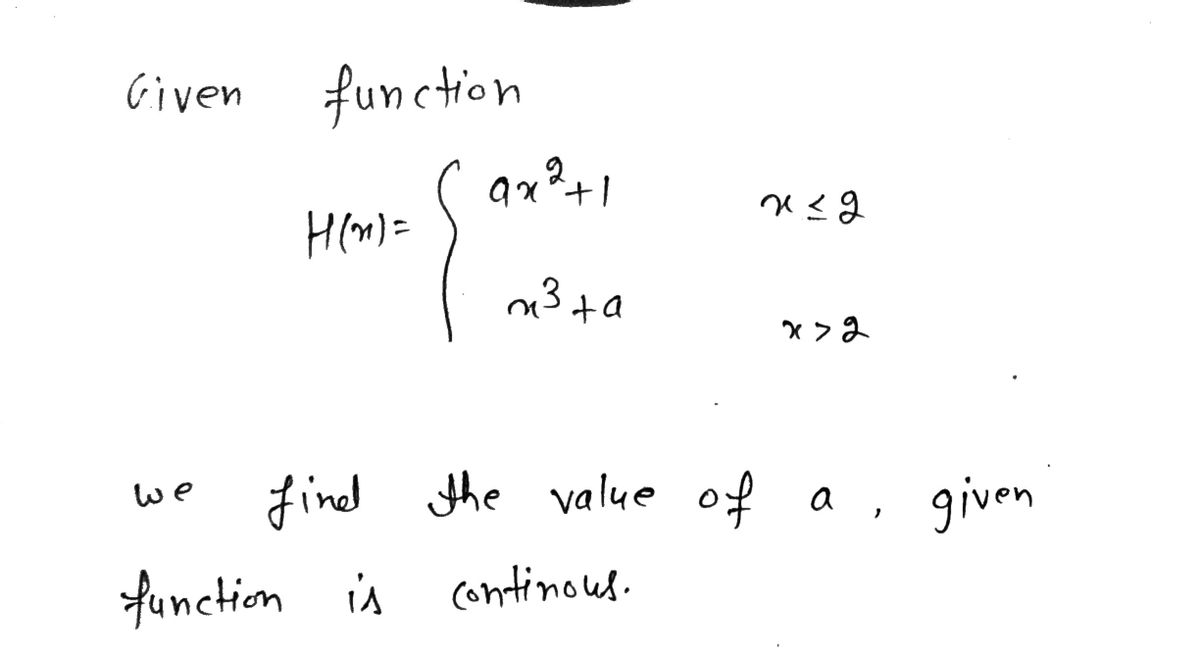 Given function
H(x) = { ax²+1 x ≤ 2
x³+a x > 2
we find the value of a, given
function is continous.